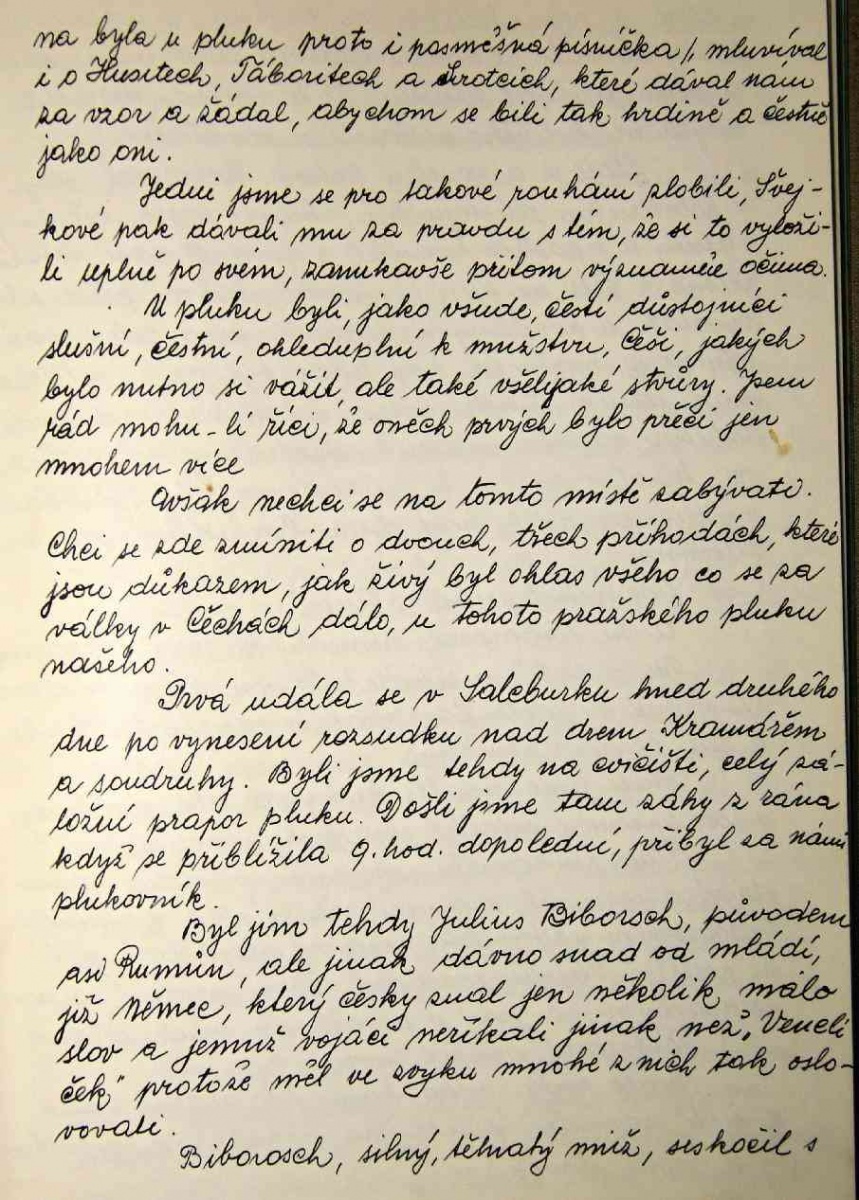 na byla u pluku proto i posměšná písnička/, mluvíval
i o Husitech, Táboritech a Sirotcích, které dával nám
za vzor a žádal, abychom se bili tak hrdině a čestně
jako oni.
Jedni jsme se pro takové rouhání zlobili, Švej-
kové pak dávali mu za pravdu s tím, že si to vyloži-
li uplně po svém, zamrkavše přitom významně očima.
U pluku byli, jako všude, čestí důstojníci
slušní, čestní, ohleduplní k mužstvu, Češi, jakých
bylo nutno si vážit, ale také všelijaké stvůry. Jsem
rád mohu-li říci, že oněch prvých bylo přeci jen
mnohem více
Avšak nechci se na tomto místě zabývati.
Chci se zde zmíniti o dvouch, třech příhodách, které
jsou důkazem, jak živý byl ohlas všeho co se za
války v Čechách dálo, u tohoto pražského pluku
našeho.
Prvá udála se v Salcburku hned druhého
dne po vynesení rozsudku nad drem Kramářem
a soudruhy. Byli jsme tehdy na cvičišti, celý zá-
ložní prapor pluku. Došli jsme tam záhy z rána
když se přiblížila 9. hod. dopolední, přibyl za námi
plukovník.
Byl jím tehdy Julius Biborsch, původem
asi Rumůn, ale jinak dávno snad od mládí,
již Němec, který česky znal jen několik málo
slov a jemuž vojáci neříkali jinak než „Vencli
ček" protože měl ve zvyku mnohé z nich tak oslo-
vovati.
Biborosch, silný, tělnatý muž, seskočil s